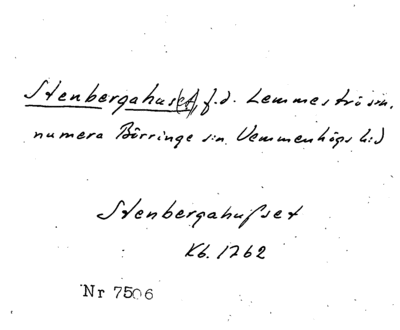 Stenbergahus(et), f.d. Lemmeströ sn,
numera Börringe sn. Vemmenhögs hd
Stenbergahusset
Kb. 1762
Nr 7506